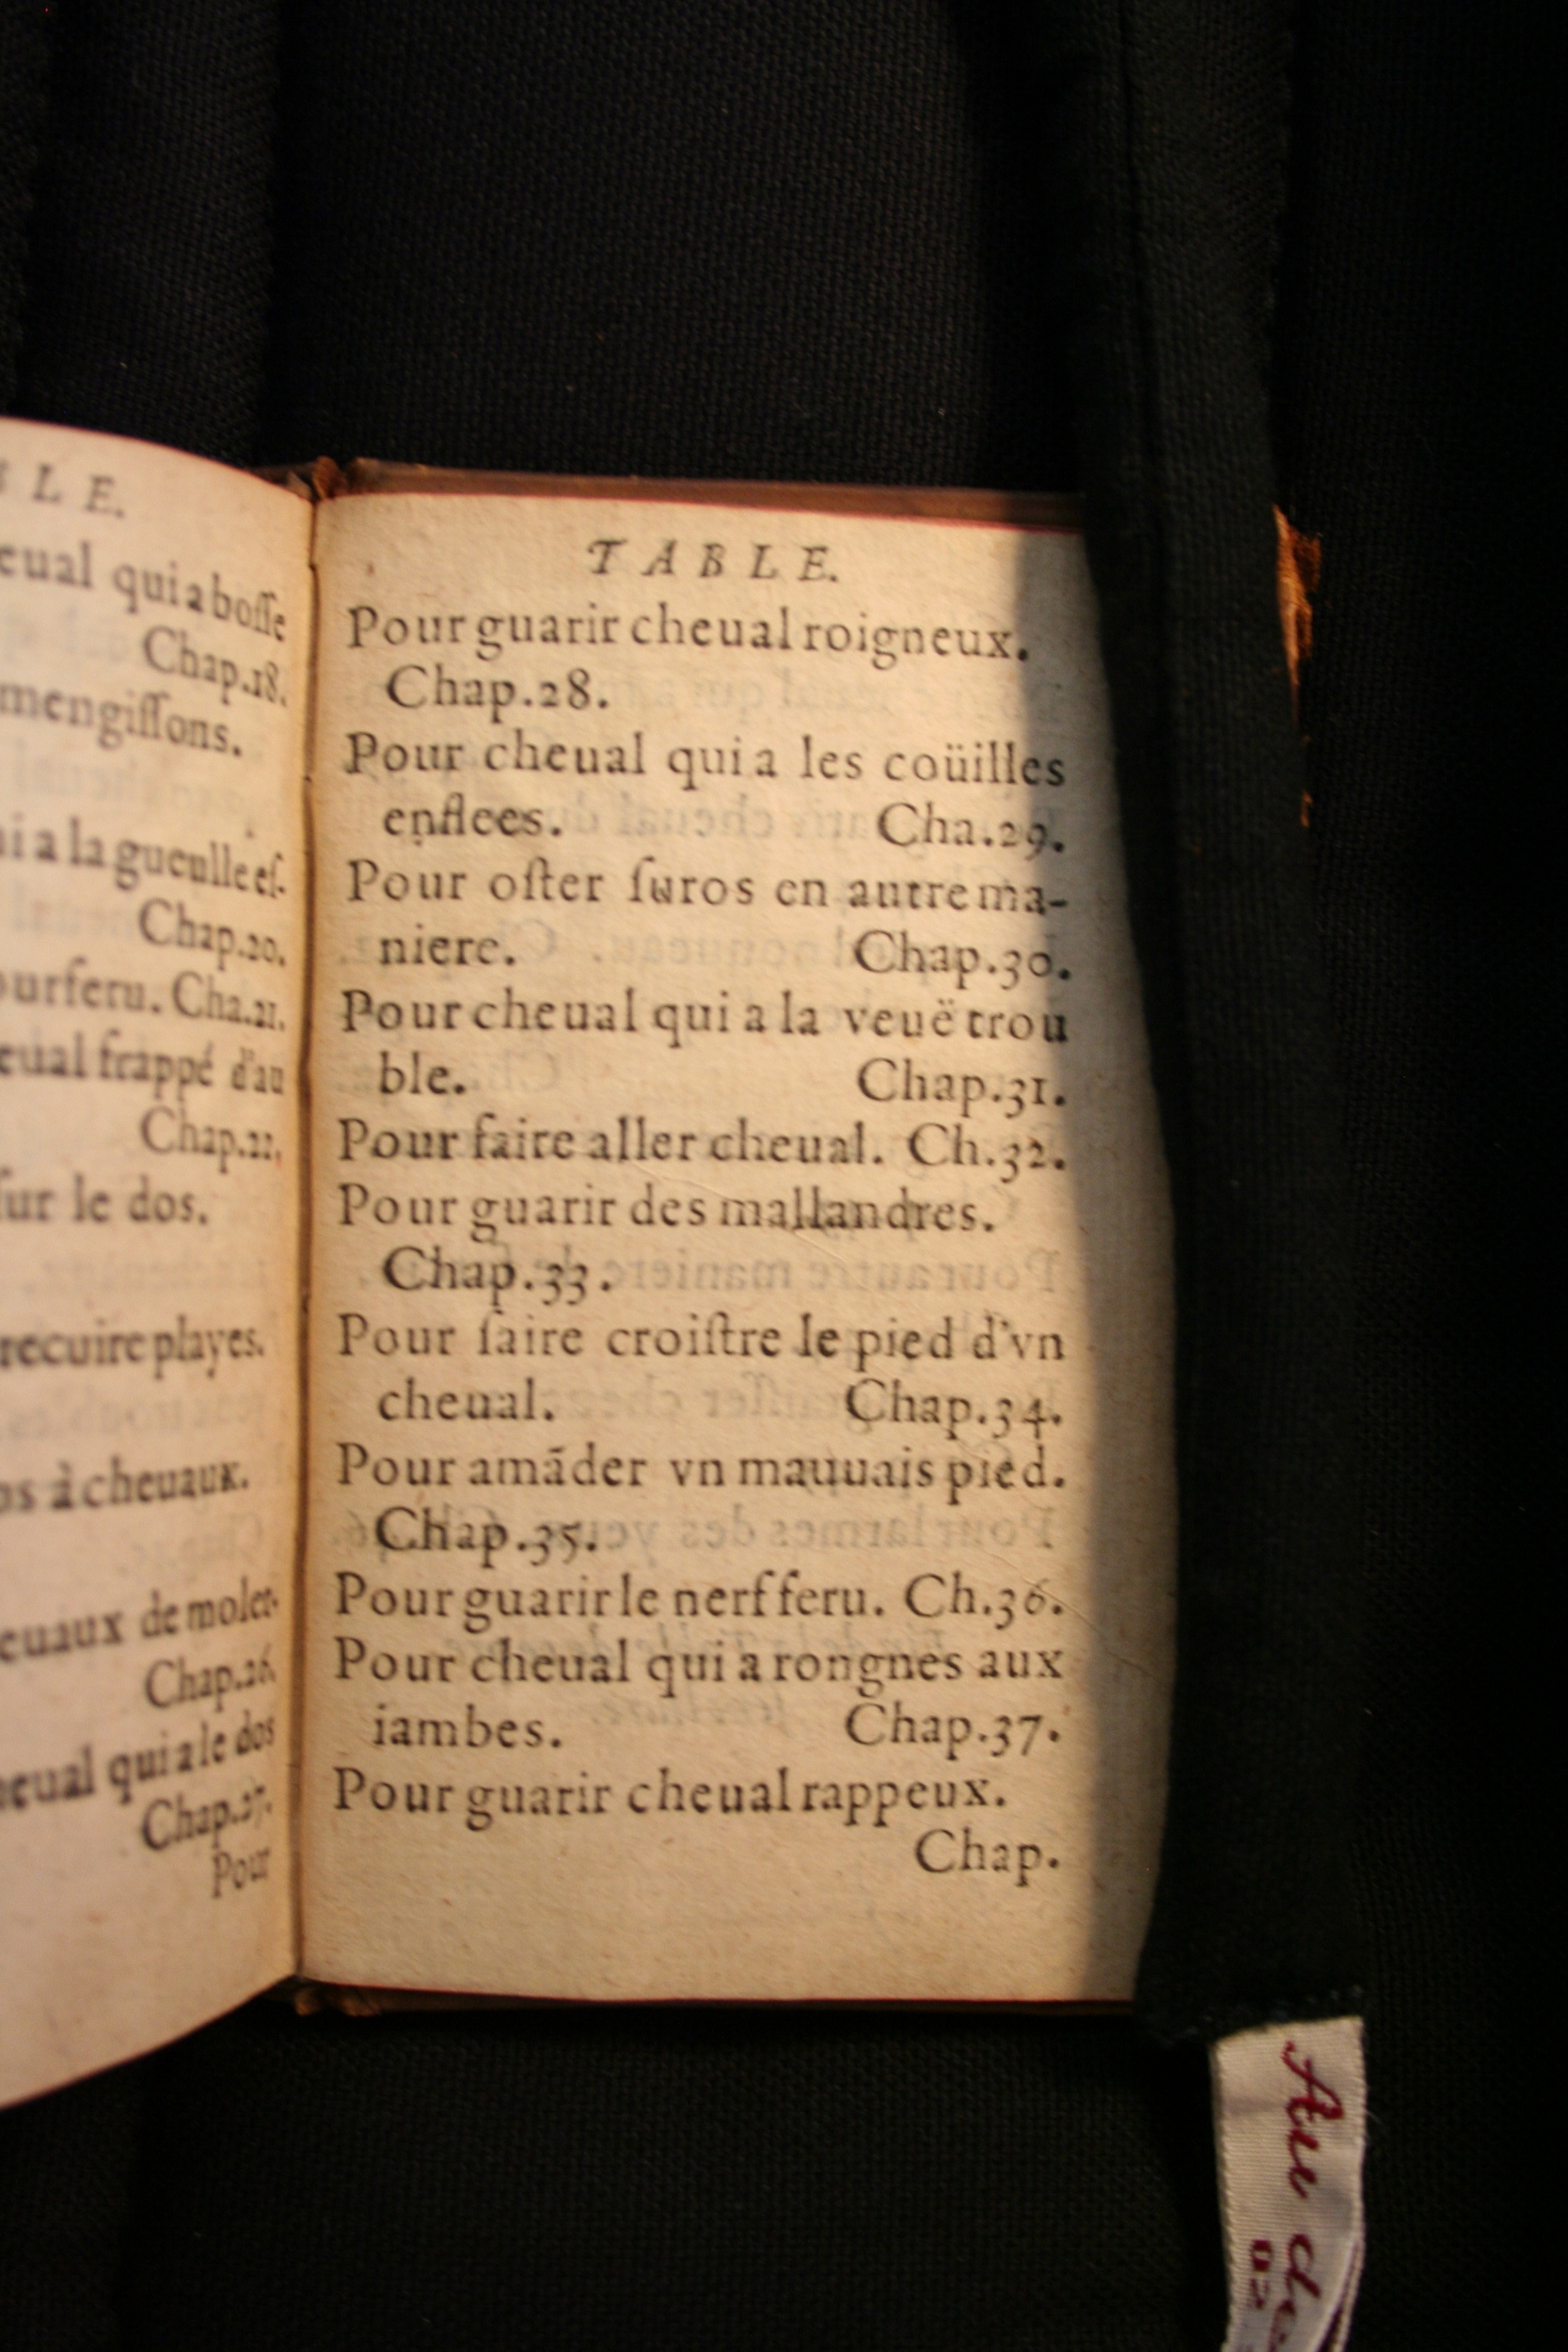 LE.
qui a bosse
Chap.18.
mengissons.
a la gueulle es-
Chap.20.
Cha.21.
frappé d'au
Chap.22.
sur le dos.
recuire playes.
à cheuaux.
de molet-
Chap.26.
qui a le dos
Chap.27.
Pour
TABLE.
Pour guarir cheual roigneux.
Chap.28.
Pour cheual qui a les coüilles
enflees. Cha.29.
Pour oster suros en autre ma-
niere. Chap.30.
Pour cheual qui a la veuë trou
ble. Chap.31.
Pour faire aller cheual. Ch.32.
Pour guarir des mallandres.
Chap.33.
Pour faire croistre le pied d'vn
cheual. Chap.34.
Pour amãder vn mauuais pied.
Chap.35.
Pour guarir le nerf feru. Ch.36.
Pour cheual qui a rongnes aux
iambes. Chap.37.
Pour guarir cheual rappeux.
Chap.
Au de
02